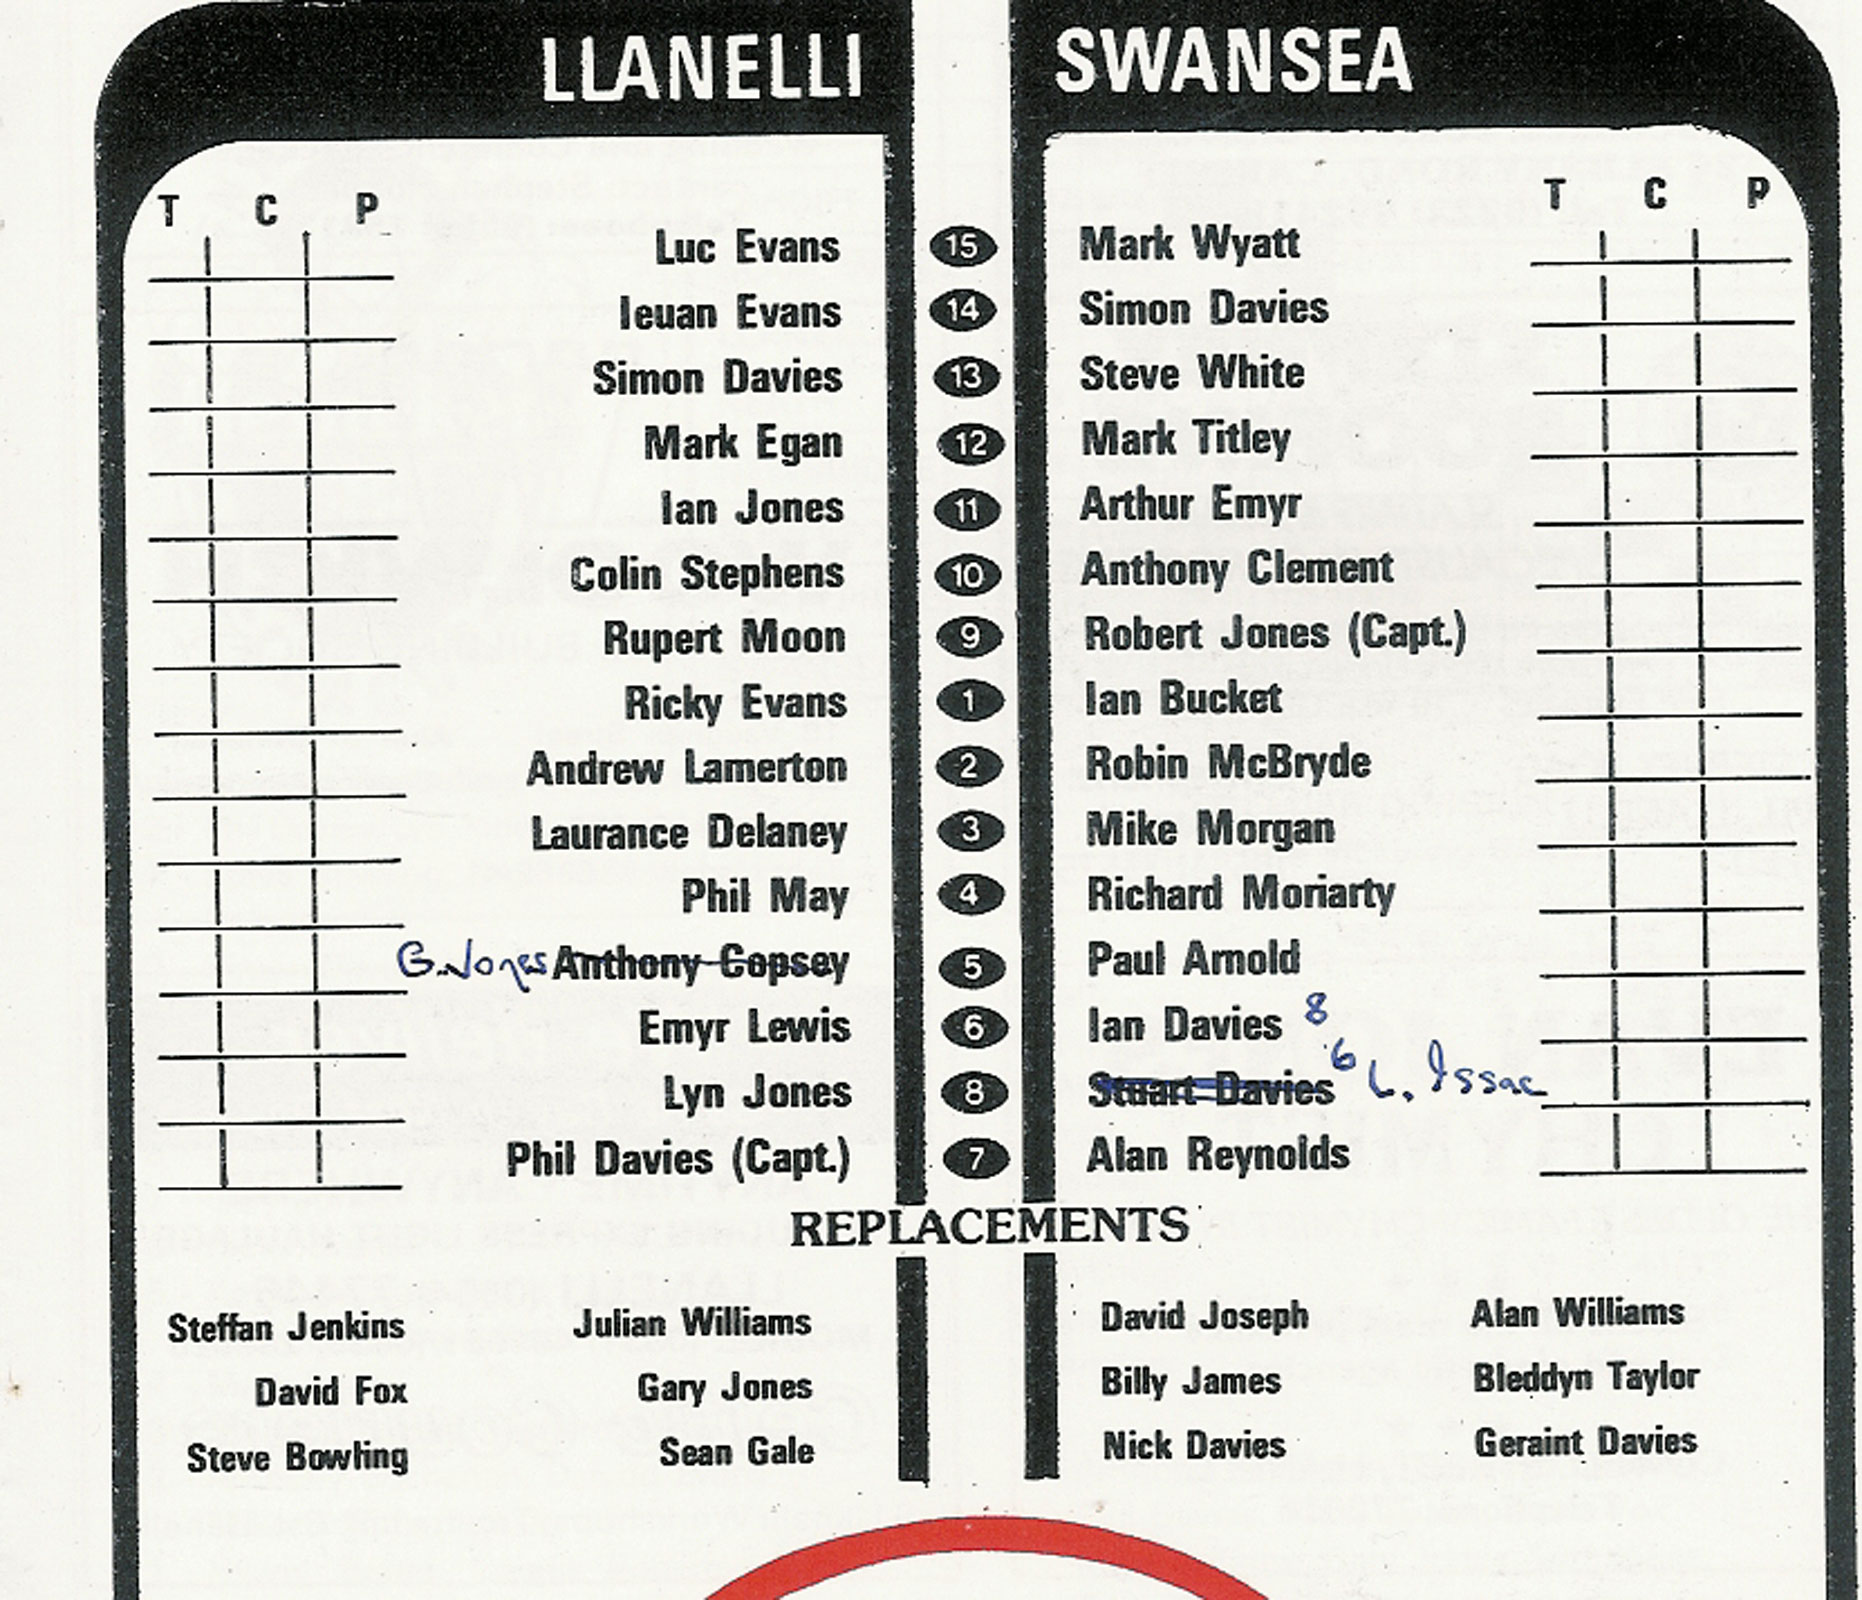 LLANELLI SWANSEA
T C P T C P
Luc Evans 15 Mark Wyatt
Ieuan Evans 14 Simon Davies
Simon Davies 13 Steve White
Mark Egan 12 Mark Titley
Ian Jones 11 Arthur Emyr
Colin Stephens 10 Anthony Clement
Rupert Moon 9 Robert Jones (Capt.)
Ricky Evans 1 Ian Bucket
Andrew Lamerton 2 Robin McBryde
Laurance Delaney 3 Mike Morgan
Phil May 4 Richard Moriarty
G. Jones Anthony Copsey 5 Paul Arnold
Emyr Lewis 6 Ian Davies 8
Lyn Jones 8 Stuart Davies 6 L. Issac
Phil Davies (Capt.) 7 Alan Reynolds
REPLACEMENTS
Steffan Jenkins Julian Williams David Joseph Alan Williams
David Fox Gary Jones Billy James Bleddyn Taylor
Steve Bowling Sean Gale Nick Davies Geraint Davies